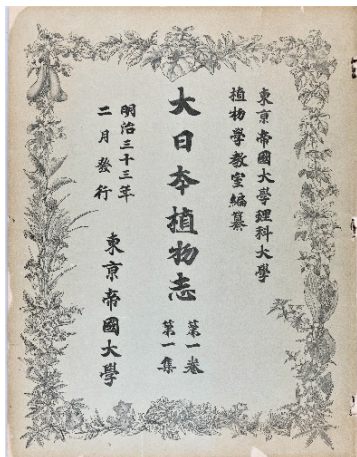 東京帝國大學理科大學
植物學教室編纂
大日本植物志
第一卷
第一集
明治三十三年
二月發行
東京帝國大學